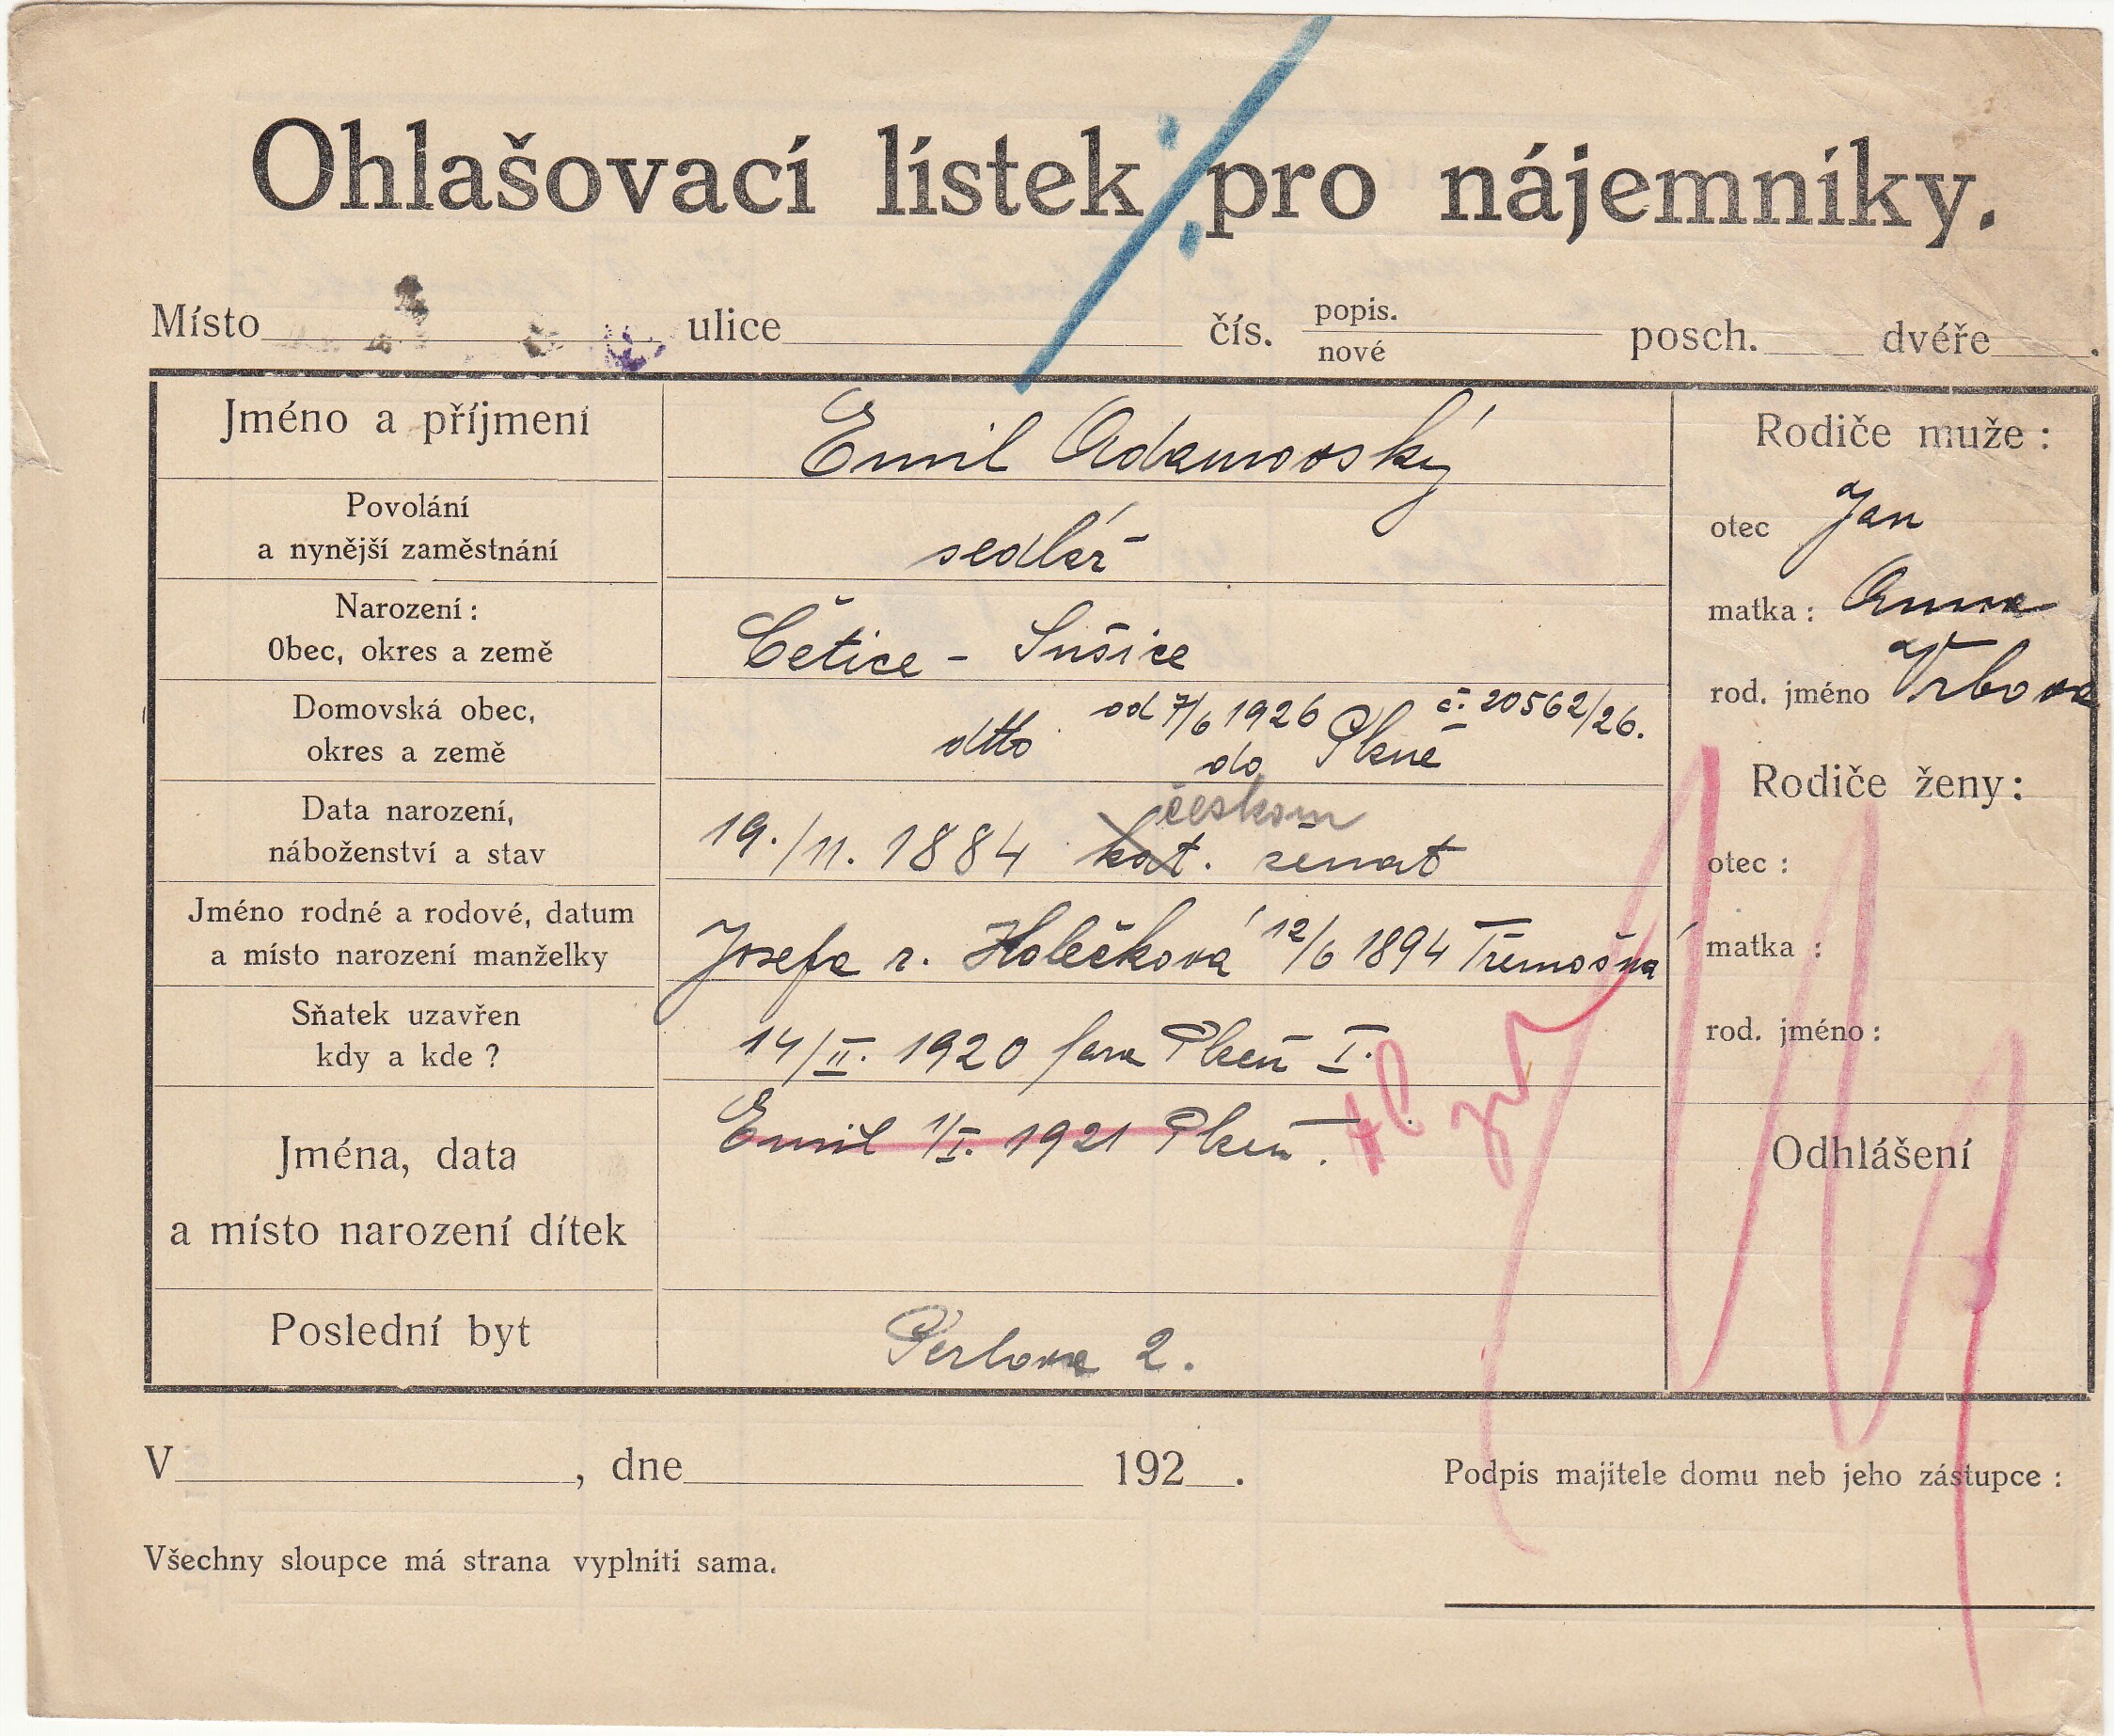 Ohlašovací lístek pro nájemníky.
Místo ulice čís. popis. nové posch. dvéře .
Jméno a příjmení Emil Adamovský
Povolání
a nynější zaměstnání sedlář
Narození:
Obec, okres a země Čětice - Sušice
Domovská obec,
okres a země dtto od 7/6 1926 č. 20562/26.
do Plzně
Data narození,
náboženství a stav 19./11. 1884 kat. českom ženat
Jméno rodné a rodové, datum
a místo narození manželky Josefa r. Holečková 12/6 1894 Třemošná
Sňatek uzavřen
kdy a kde? 14/II. 1920 fara Plzeň I.
Jména, data
a místo narození dítek Emil 1/I. 1921 Plzeň.
Poslední byt Perlova 2.
Rodiče muže:
otec Jan
matka: Anna
rod. jméno Vrbova
Rodiče ženy:
otec:
matka:
rod. jméno:
Odhlášení
V , dne 192 .
Podpis majitele domu neb jeho zástupce:
Všechny sloupce má strana vyplniti sama.